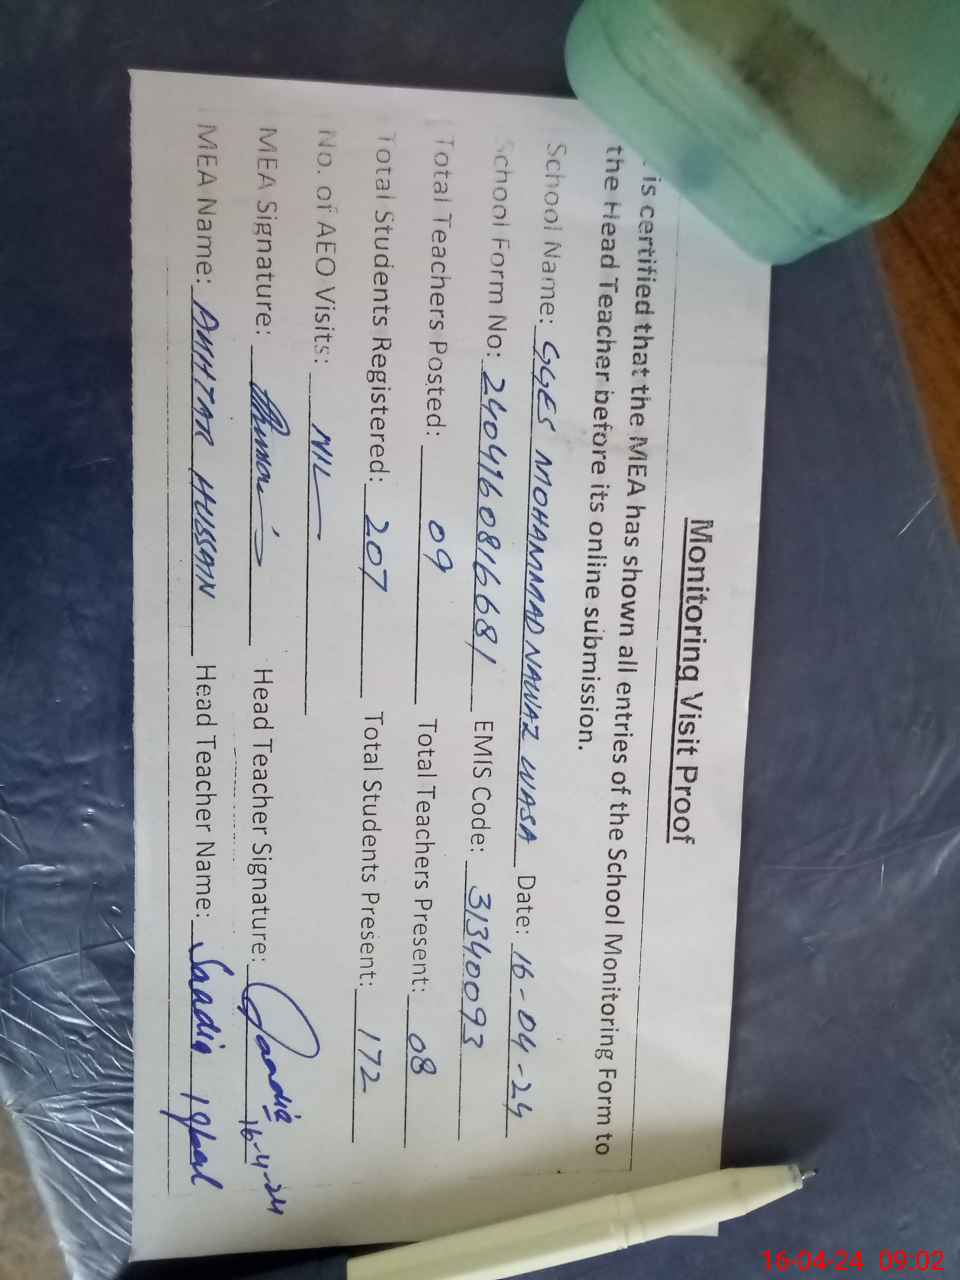 Monitoring Visit Proof
is certified that the MEA has shown all entries of the School Monitoring Form to
the Head Teacher before its online submission.
School Name: GGES MOHAMMAD NAWAZ WASA Date: 16-04-24
School Form No: 2404160816681 EMIS Code: 31340093
Total Teachers Posted: 09 Total Teachers Present: 08
Total Students Registered: 207 Total Students Present: 172
No. of AEO Visits: NIL
MEA Signature: Head Teacher Signature: Saadia 16-4-24
MEA Name: HUSSAIN Head Teacher Name: Saadia Iqbal
16-04-24 09:02